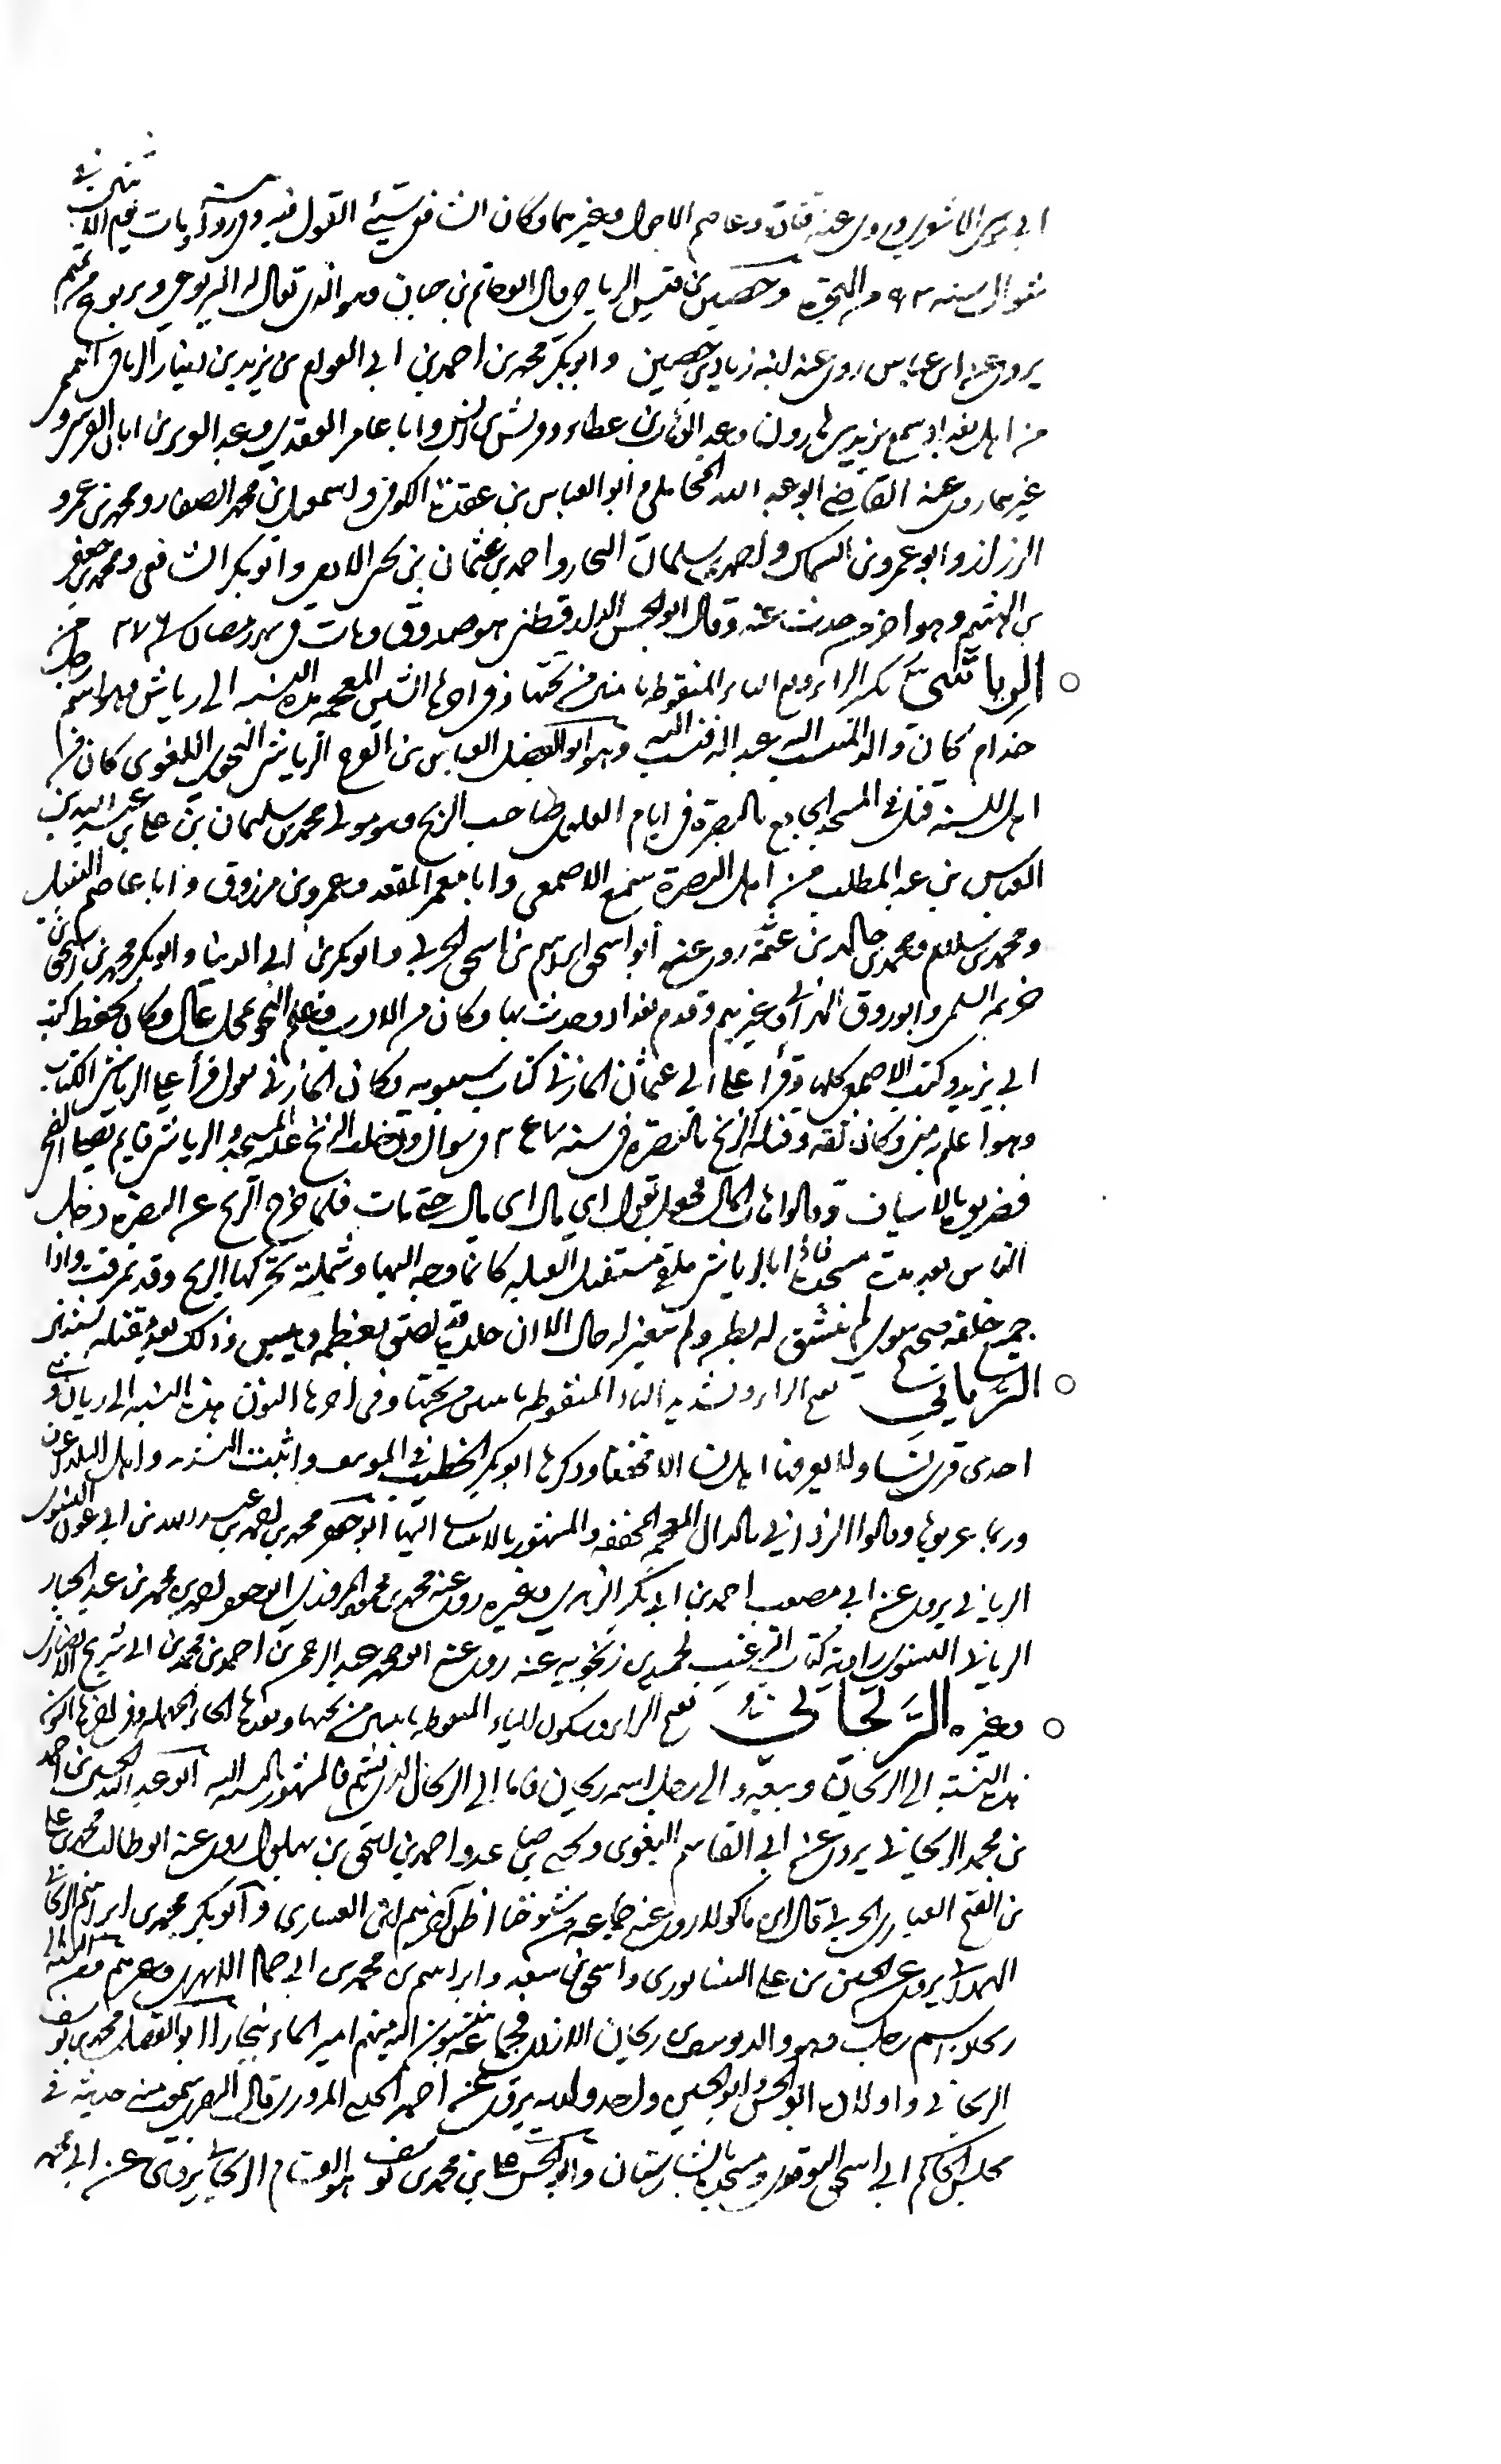 ابى موسى الاشعرى روى عنه قتادة وعاصم الاحول وغيرهما وكان الشافعى سيئ القول فيه
شوال سنه ٩٣ من الهجرة وحصين بن قيس الرياحى قال ابو حاتم بن حبان وهو الذى يقال له اليربوعى ويربوع من تميم
يروى عن ابن عباس روى عنه ابنه زياد بن حصين وابو بكر محمد بن احمد بن ابى العوام بن يزيد بن دينار الرياحى التميمى
من اهل بغداد سمع يزيد بن هارون وعبد الوهاب بن عطاء وقريش بن انس وابا عامر العقدى وعبد العزيز بن ابان القرشى و
غيرهما روى عنه القاضى ابو عبد الله المحاملى وابو العباس بن عقدة الكوفى واسمعيل بن محمد الصفار ومحمد بن عمرو
الرزاز وابو عمرو بن السماك واحمد بن سلمان النجاد واحمد بن عثمان بن يحيى الادمى وابو بكر الشافعى ومحمد بن جعفر
بن الهيثم وهو اخر من حدث عنه وقال ابو الحسن الدارقطنى هو صدوق ومات فى شهر رمضان سنة ٢٧٦
الرياشى بكسر الراء وفتح الياء المنقوطة باثنتين من تحتها وفى اخرها الشين المعجمة هذه النسبة الى رياش وهو اسم رجل من
جذام كان والد المنتسب اليه عبد اله فنسب اليه وهو ابو الفضل العباس بن الفرج الرياشى النحوى اللغوى كان من
اهل السنة قتل فى المسجد الجامع بالبصرة فى ايام العلوى صاحب الزنج وهو مولى محمد بن سليمان بن على بن عبد الله بن
العباس بن عبد المطلب من اهل البصرة سمع الاصمعى وابا معمر المقعد وعمرو بن مرزوق وابا عاصم النبيل
ومحمد بن سلام ومحمد بن خالد بن عثمة روى عنه ابو اسحق ابراهيم بن اسحق الحربى وابو بكر بن ابى الدنيا وابو بكر محمد بن اسحق بن
خزيمة السلمى وابو روق الهزانى وغيرهم وقدم بغداد وحدث بها وكان من الادب وعلم النحو بمحل عال وكان يحفظ كتب
ابى زيد وكتب الاصمعى كلها وقرأ على ابى عثمان المازنى كتاب سيبويه وكان المازنى يقول قرأ على الرياشى الكتاب
وهو اعلم به منى وكان ثقة وقتله الزنج بالبصرة فى سنه ٢٥٧ فى شوال ودخلت الزنج عليه المسجد والرياشى قايم يصلى الضحى
فضربوه بالاسياف وقالوا هات المال فجعل يقول اى مال اى مال حتى مات فلما خرج الزنج عن البصرة دخل
الناس بعد مدة مسجده فاذا الرياشى ملقى مستقبل القبلة كانما وجه اليها وشملته تحركها الريح وقد تمزقت واذا
جميع خلقه صحيح سوى لم ينشق له بطن ولم يتغير له حال الا ان جلده قد لصق بعظمه ويبس وذلك بعد قتله بسنتين
الريانى بفتح الراء وتشديد الياء المنقوطة باثنتين من تحتها وفى اخرها النون هذه النسبة الى ريان وهى
احدى قرى نسا ولا يعرفها اهل نسا الا مخففا وذكرها ابو بكر الخطيب فى المؤتنف واثبت التشديد واهل البلد اعرف
وربما عربوها وقالوا الرذانى بالذال المعجمة المخففة والمشهور بالانتساب اليها ابو جعفر محمد بن احمد بن عبد الله بن ابى عون النسوى
الريانى يروى عن ابى مصعب احمد بن ابى بكر الزهرى وغيره روى عنه محمد بن محمود المروزى ابو جعفر احمد بن محمد بن عبد الجبار
الريانى النسوى راوية كتاب الترغيب لحميد بن زنجويه عنه روى عنه ابو محمد عبد الرحمن بن احمد بن محمد بن ابى شريح الانصارى
وغيره الريحانى بفتح الراء وسكون الياء المنقوطة باثنتين من تحتها وبعدها الحاء المهملة وفى اخرها النون
هذه النسبة الى الريحان وبيعه والى رجل اسمه ريحان فاما الى الريحان الذى يشم فالمشهور بالنسبة اليه ابو عبد الله الحسين بن احمد
بن محمد الريحانى يروى عن ابى القاسم البغوى ويحيى بن صاعد واحمد بن اسحق بن بهلول روى عنه ابو طالب محمد بن على
بن الفتح العشارى الحربى قال ابن ماكولا روى عنه جماعة من شيوخنا اظن اخرهم ابن العشارى وابو بكر محمد بن ابراهيم الريحانى
الهمدانى يروى عن الحسين بن على النيسابورى واسحق بن سعد وابراهيم بن محمد
ريحان اسم رجل وهو والد موسى بن ريحان فجماعة ينتسبون اليه منهم امير الماء ببخارا ابو الفضل محمد بن يوسف
الريحانى واولاده ابو الحسن وابو الحسين
مجلس الحاكم ابى اسحق النوقدى ومسجده بالشارستان وابو الحسن على بن محمد بن يوسف الريحانى يروى عن ابى محمد